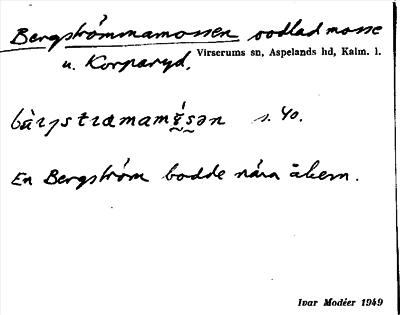 Bergströmmamossen odlad mosse
u. Korparyd. Virserums sn, Aspelands hd, Kalm. l.
s. 40.
En Bergström bodde nära åkern.
Ivar Modéer 1949